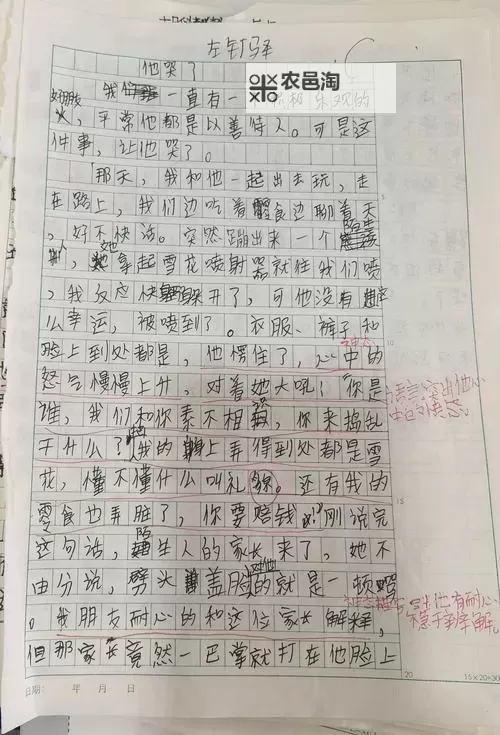 左钉驿
他哭了
农邑淘
我 一直有一 乐观的
朋友，平常他都是以善待人。可是这
件事，让他哭了。
那天，我和他一起出去玩，走
在路上，我们边吃着零食边聊着天
，好不快活。突然蹦出来一个陌生
人，她拿起雪花喷射器就往我们喷
，我反应快躲开了，可他没有这
么幸运，被喷到了。衣服、裤子和
脸上到处都是，他愣住了，心中的
怒气慢慢上升，对着她大吼：“你是
谁，我们和你素不相识，你来捣乱
干什么？我的身上弄得到处都是雪
花，懂不懂什么叫礼貌。还有我的
零食也弄脏了，你要赔钱！”刚说完
这句话，陌生人的家长来了，她不
由分说，劈头盖脸的就是一顿
。我朋友耐心的和这位家长解释，
但那家长竟然一巴掌就打在他脸上
神态
语言写出他心
中的
写出他有耐心
，
日期： 年 月 日
5
10
15
20
15×20=300